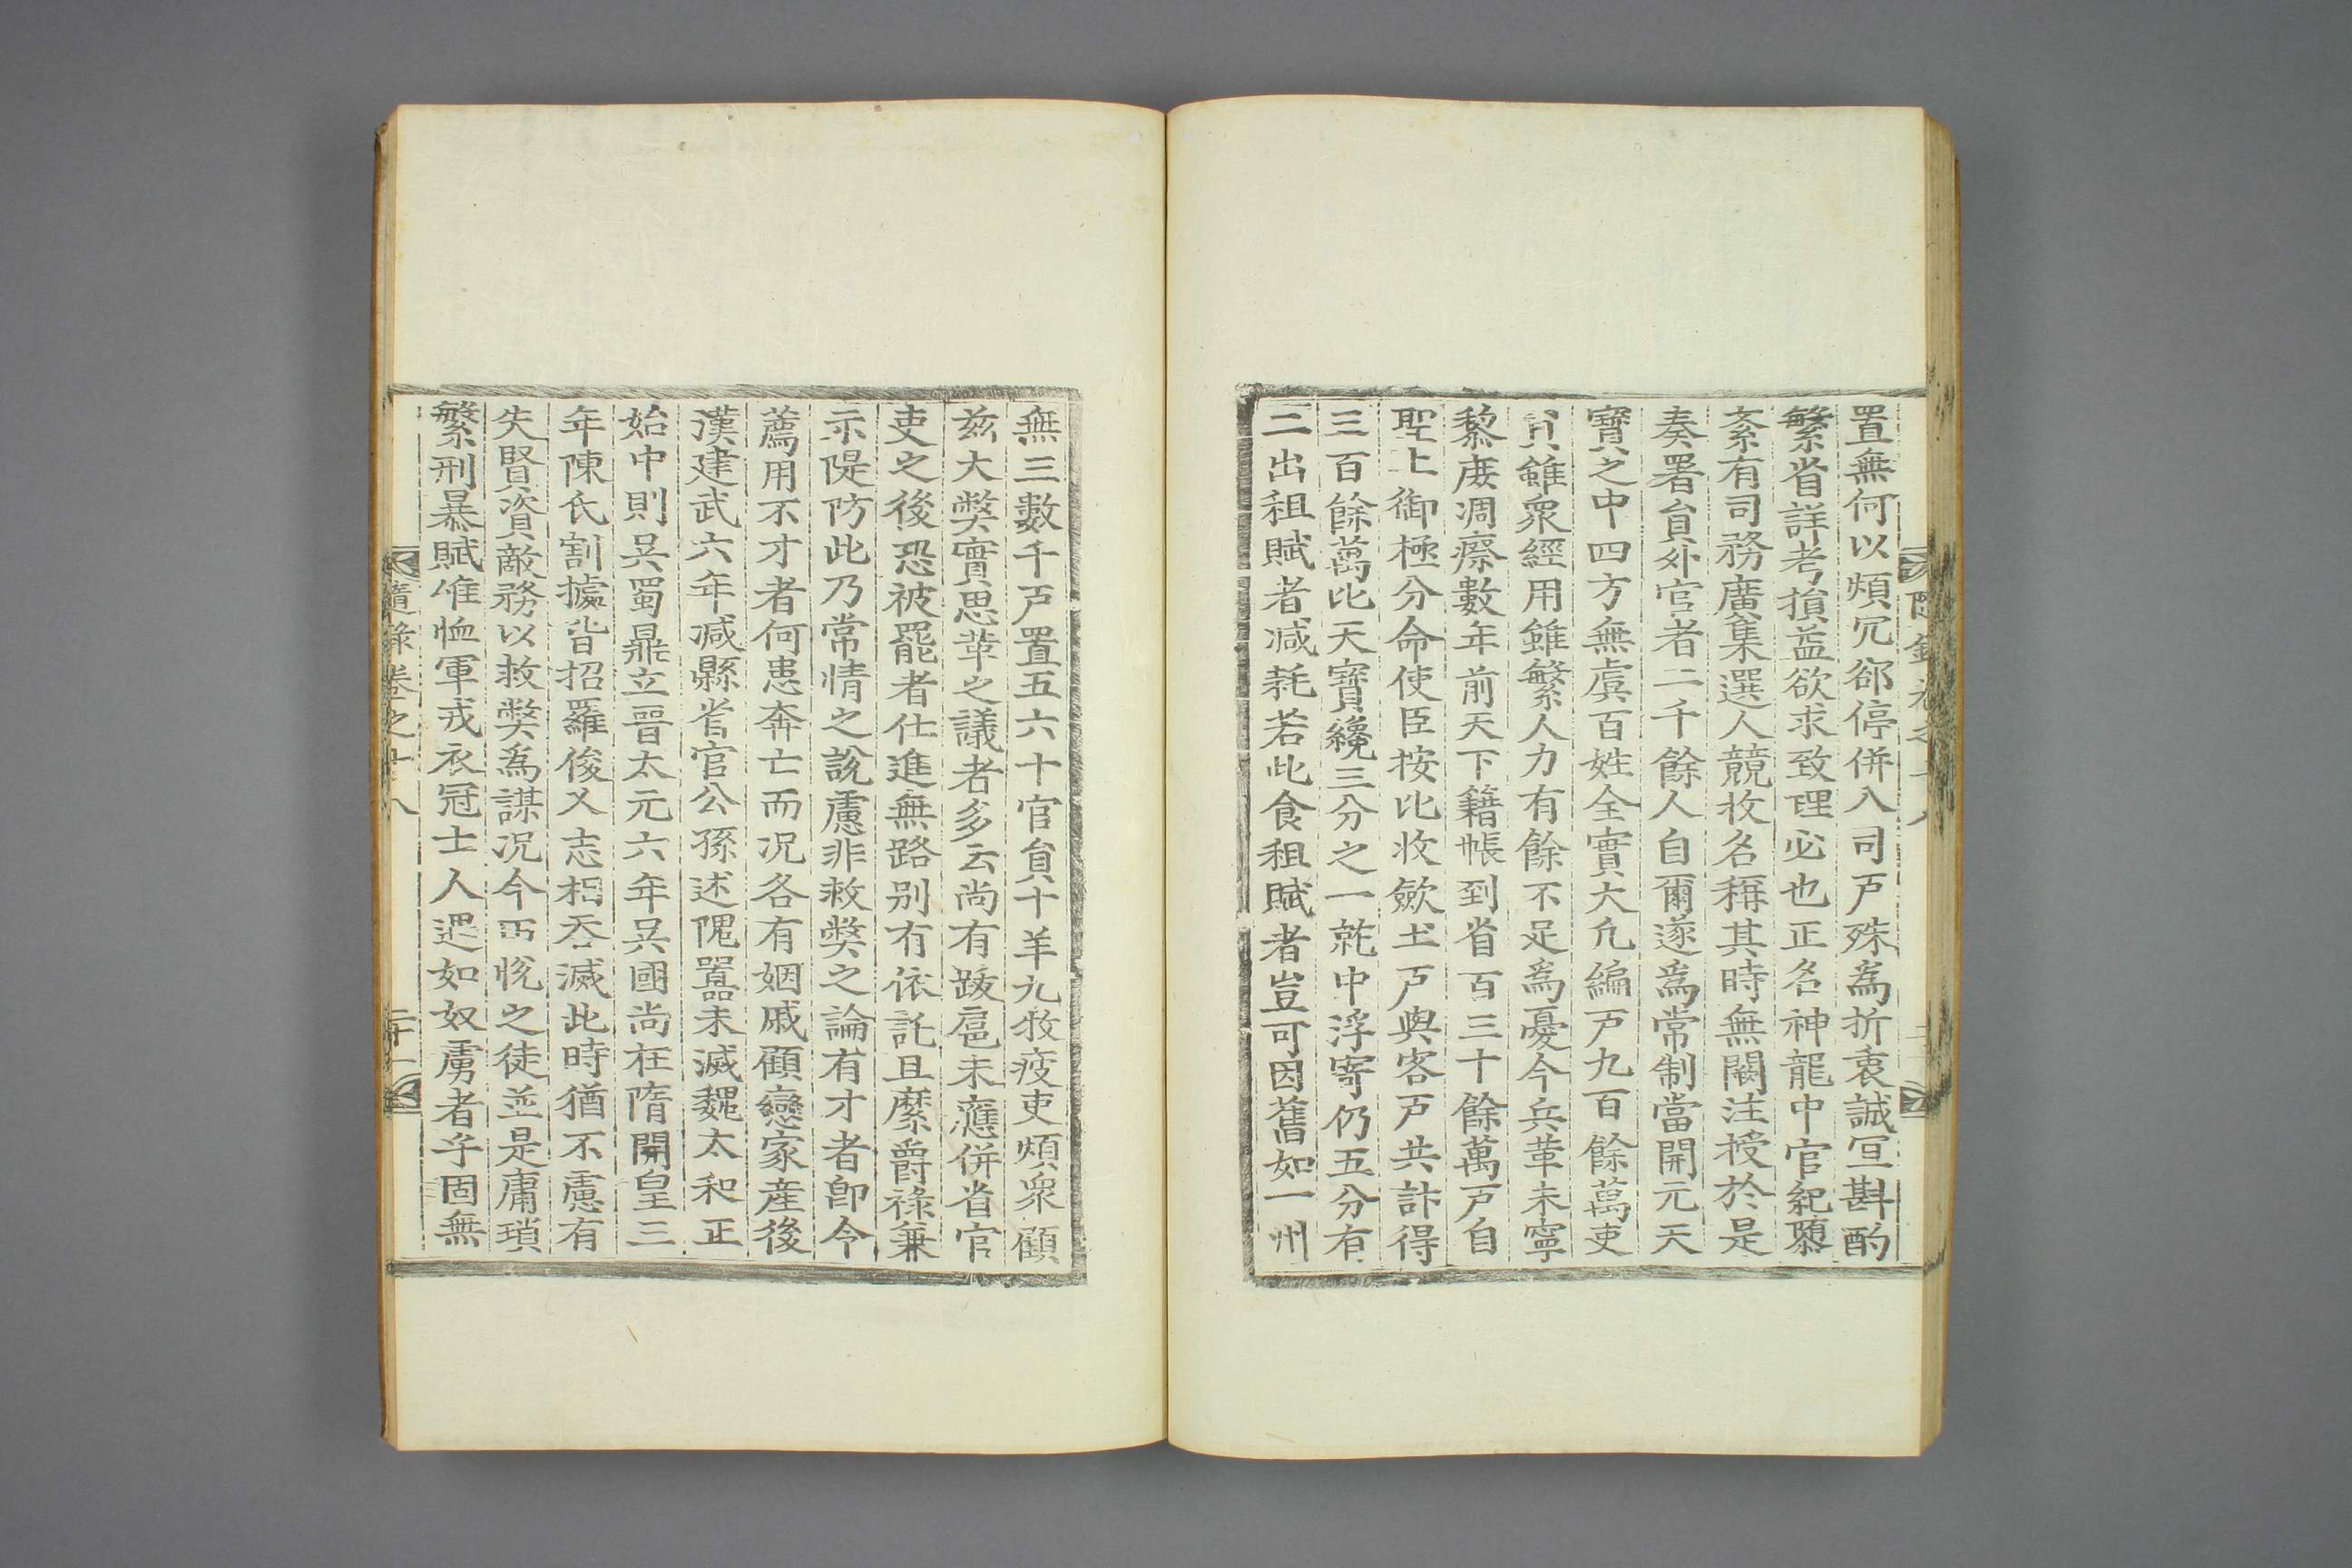 置無何以煩冗郤停併入司戶殊爲折衷誠宜斟酌
繁省詳考損益欲求致理必也正名神龍中官紀隳
紊有司務廣集選人競收名稱其時無闕注授於是
奏署員外官者二千餘人自爾遂爲常制當開元天
寶之中四方無虞百姓全實大凢編戶九百餘萬吏
員雖衆經用雖繁人力有餘不足爲憂今兵革未寧
黎庻凋瘵數年前天下籍帳到省百三十餘萬戶自
聖上御極分命使臣按比收斂土戶與客戶共計得
三百餘萬比天寶纔三分之一就中浮寄仍五分有
二出租賦者減耗若此食租賦者豈可因舊如一州
無三數千戶置五六十官員十羊九牧疲吏煩衆顧
玆大弊實思革之議者多云尚有跋扈未應併省官
吏之後恐被罷者仕進無路別有依託且縻爵祿兼
示隄防此乃常情之說慮非救弊之論有才者卽令
薦用不才者何患奔亡而况各有姻戚顧戀家產後
漢建武六年減縣省官公孫述隗囂未滅魏太和正
始中則吳蜀鼎立晉太元六年吳國尚在隋開皇三
年陳氏割據皆招羅俊乂志相呑滅此時猶不慮有
失賢資敵務以救弊爲謀况今田悅之徒並是庸瑣
繁刑暴賦惟恤軍戎衣冠士人遇如奴虜者乎固無
隨錄卷之十八
二十一